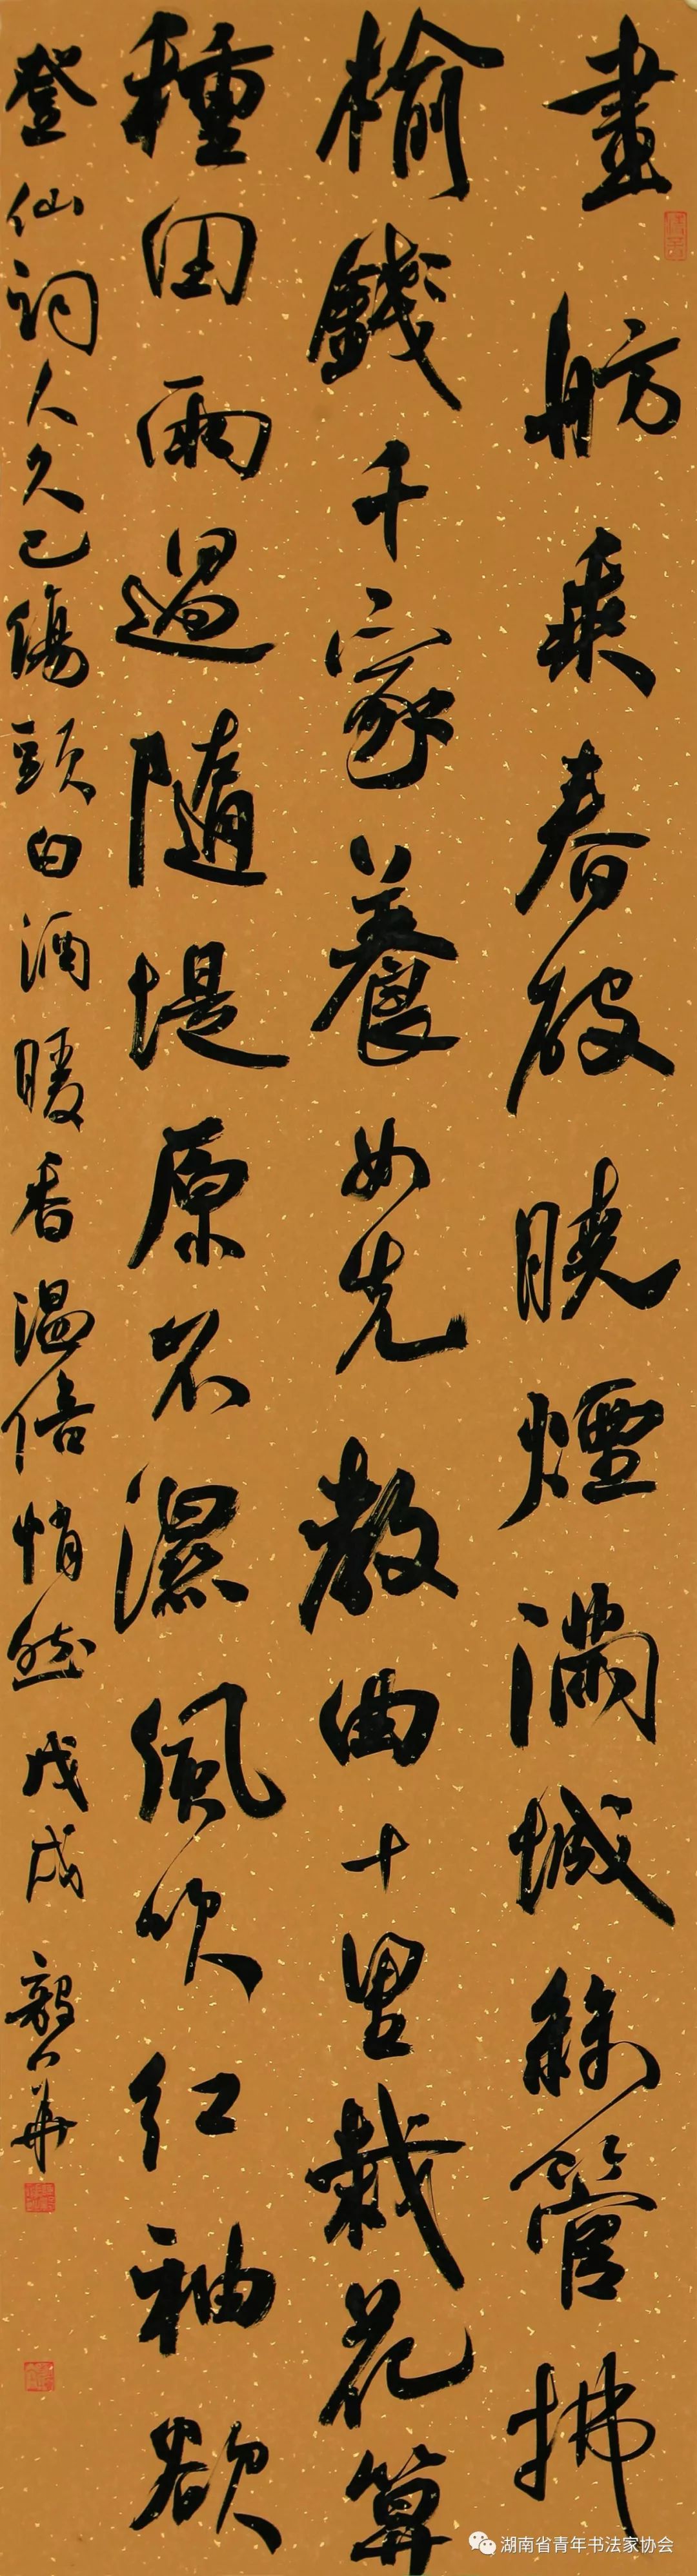 畫舫乘春破曉煙滿城絲管拂
榆錢千家養女先教曲十里栽花算
種田雨過隨堤原不濕風吹紅袖欲
登仙詞人久已傷頭白酒暖香溫倍悄然戊戌毅華
湖南省青年书法家协会